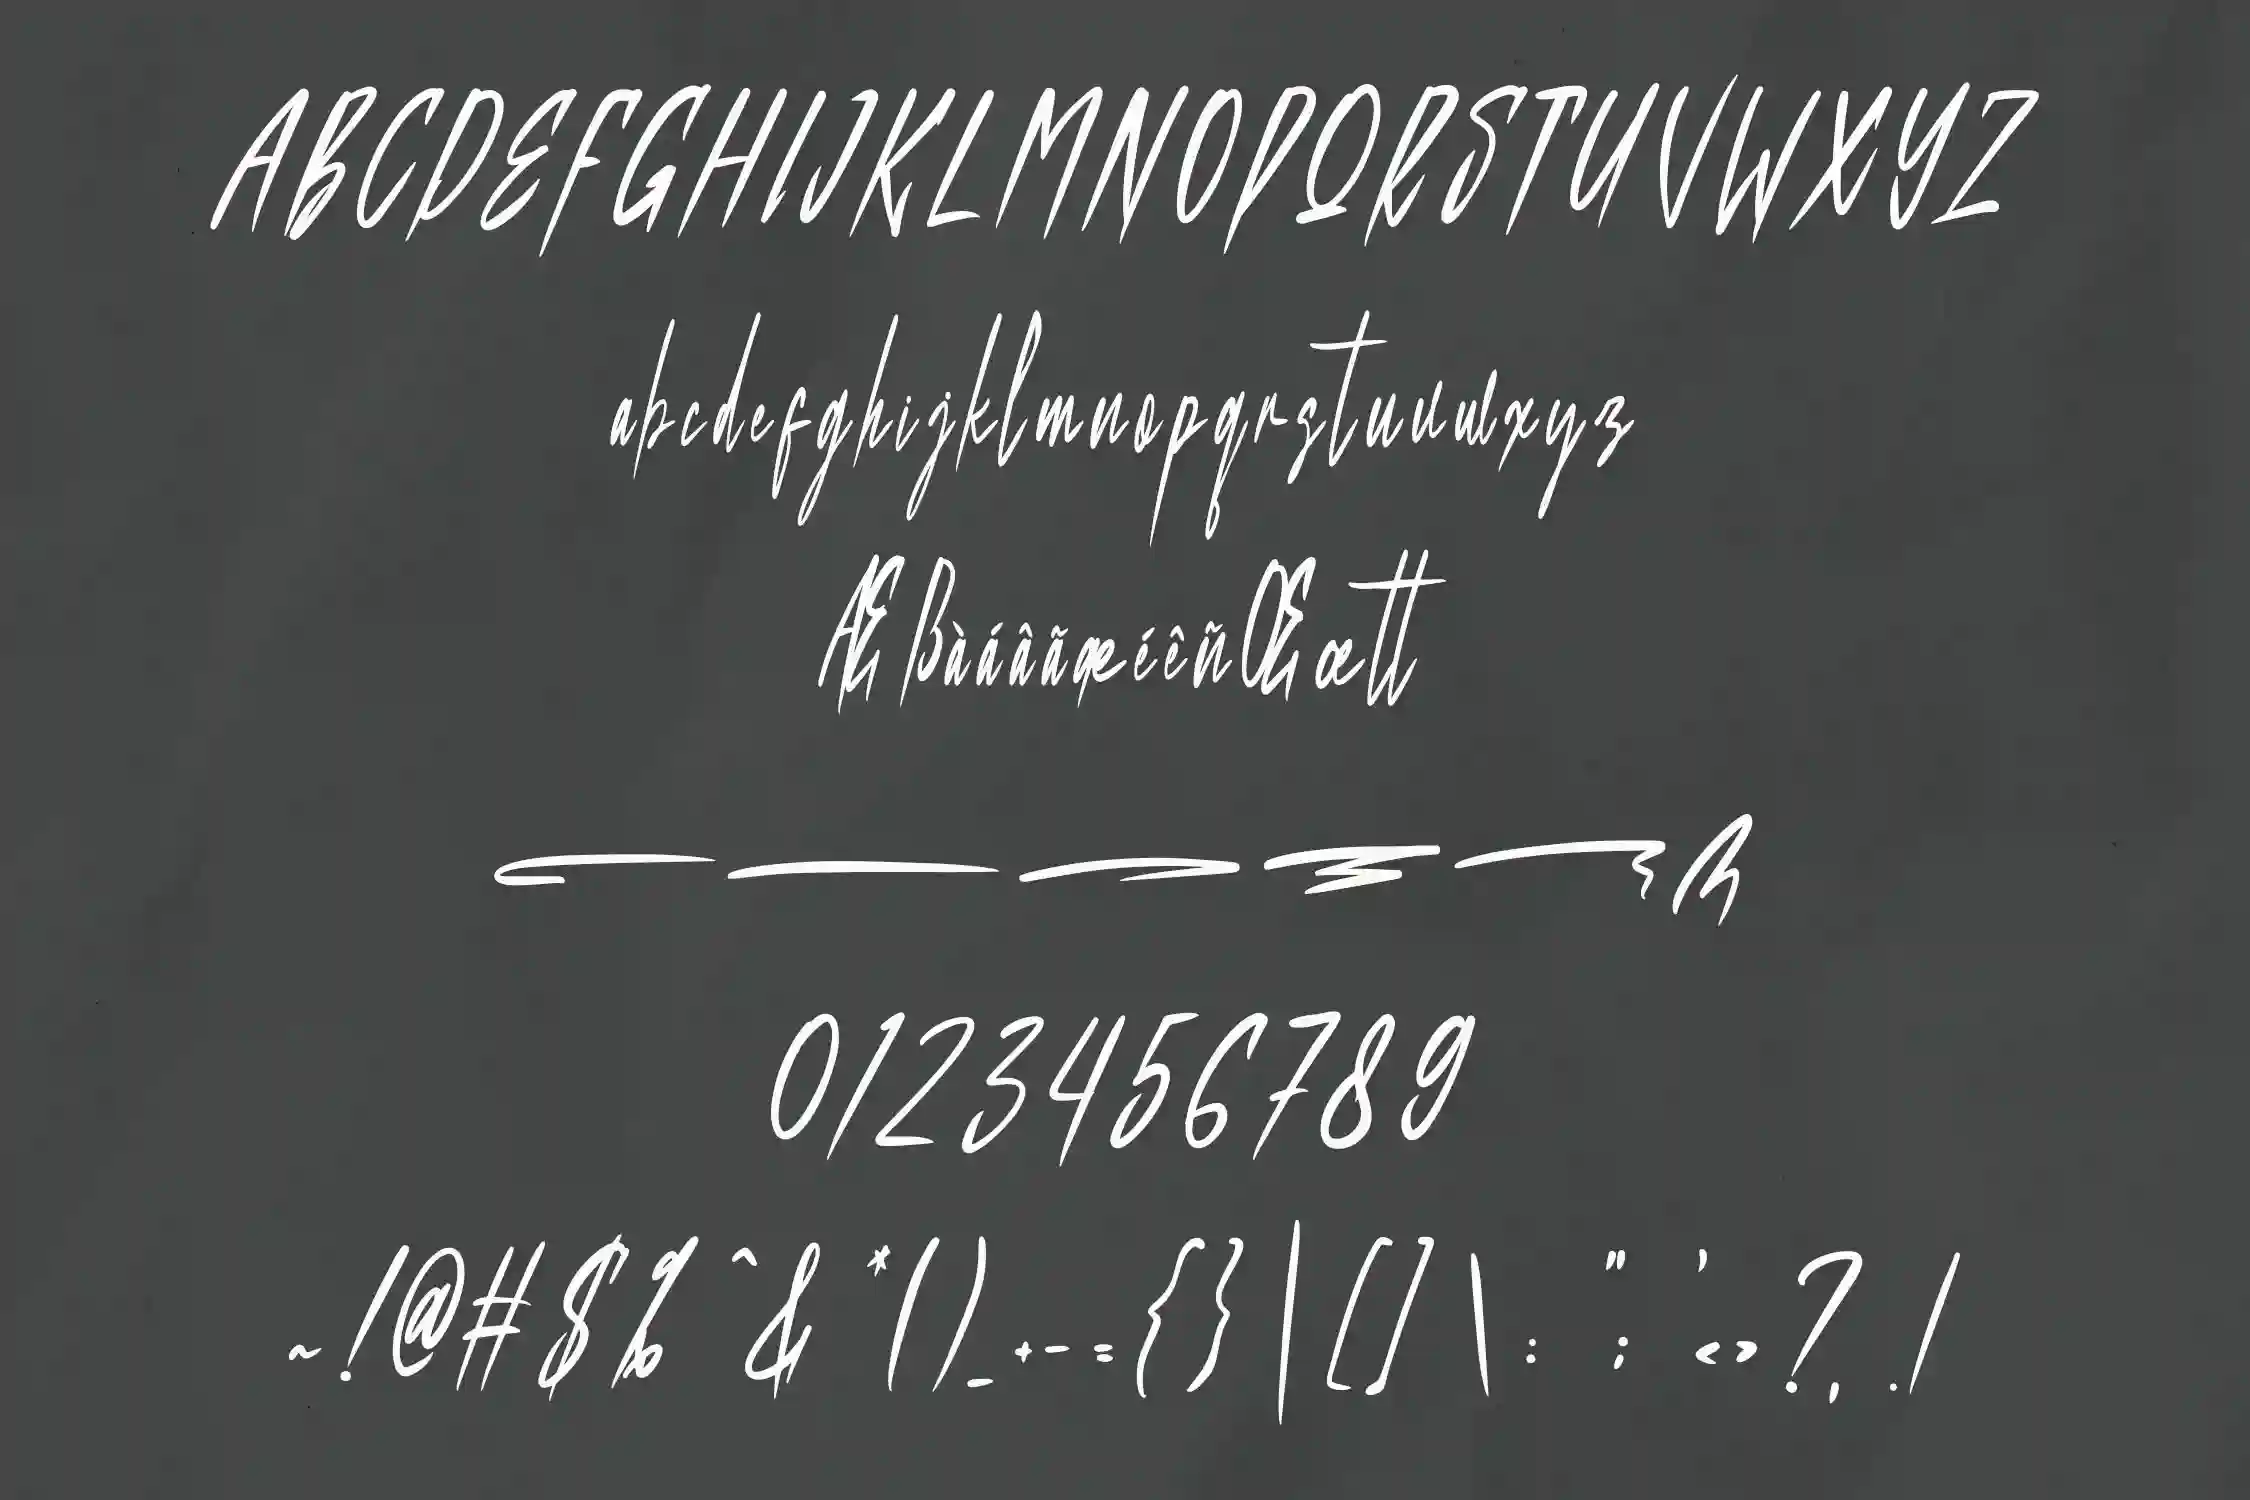 ABCDEFGHIJKLMNOPQRSTUVWXYZ
abcdefghijklmnopqrstuvwxyz
ÆßàáâãæéêñŒœtt
0123456789
~!@#$%^&*()_+-={}|[]\:";'<>?,./